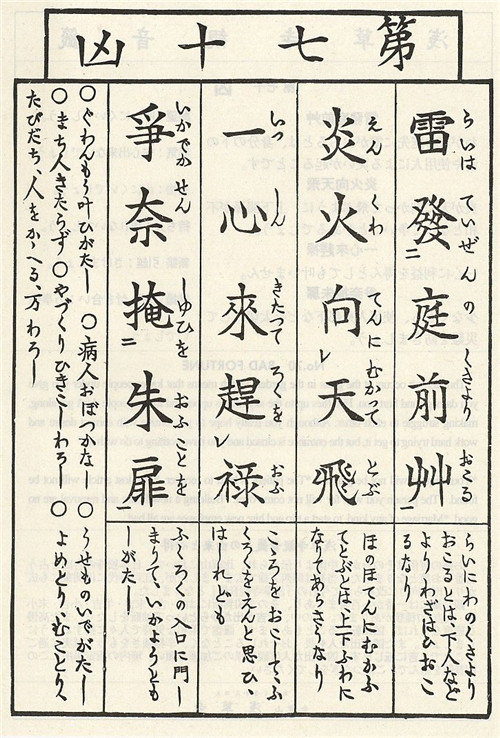 第七十凶
雷發二庭前艸一
らいは ていぜん の くさより おこる
らいにわのくさより
おこるとは、下人など
よりわざはひおこ
るなり
炎火向レ天飛
えん くわ てんに むかつて とぶ
ほのほてんにむかふ
てとぶとは、上下ふわに
なりてあらさうなり
一心來趕レ禄
いつ しん きたつて ろくを おふ
こころをおこしてふ
くろくをえんと思ひ、
はしれども
爭奈掩二朱扉一
いかでか せん しゆひを おふことを
ふくろくの入口に門し
まりて
しがたし
○ぐわんもう叶ひがたし ○病人おぼつかな ○うせものいでがたし
○まち人きたらず ○やづくりひきこしわろし ○よめとり、むことり、
たびだち、人をかゝへる、万わろし